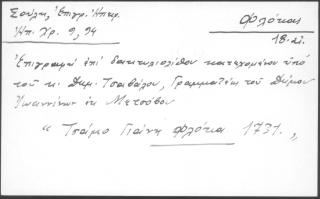 Σούλης, Ἐπιγρ. Ἠπειρ.
Ἠπ. Χρ. 9, 94
Φλόκας
18. αἰ.
Ἐπιγραφή ἐπί δακτυλιολίθου κατεχομένου ὑπό
τοῦ κ. Δημ. Τσαβάλου, Γραμματέως τοῦ Δήμου
Ἰωαννίνων ἐκ Μετσόβου
“ Τσάμο Γιάνη Φλόκα 1731. „